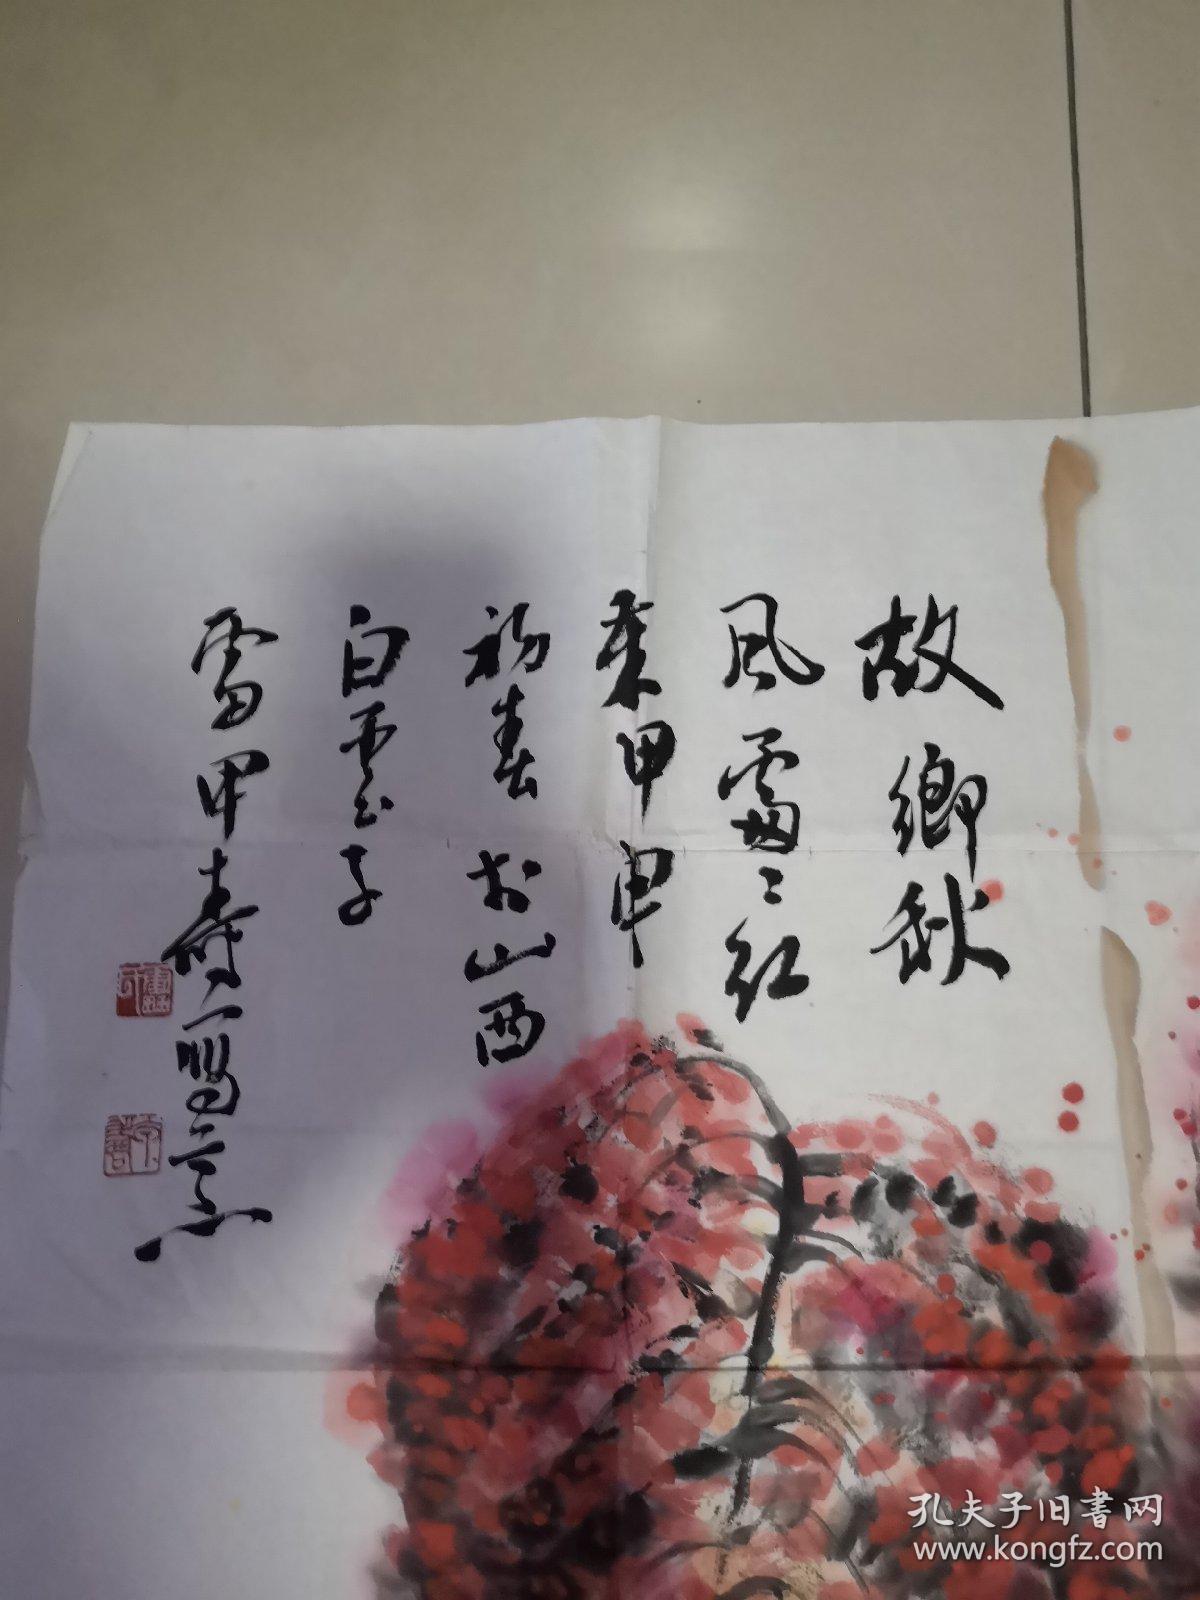 故鄉秋
風紅
甲申
初春於山西
白雲
雷甲壽寫意
孔夫子旧書网
www.kongfz.com